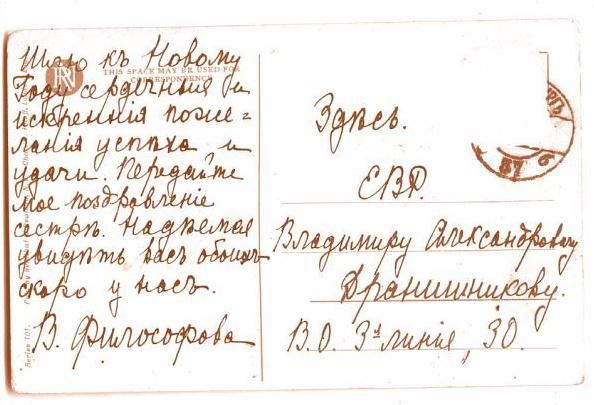 Шлю къ Новому
Году сердечныя и
искреннія поже-
ланія успѣха и
удачи. Передайте
мое поздравленіе
сестрѣ. Надѣемся
увидѣть васъ обоихъ
скоро у насъ.
В. Философова
THIS SPACE MAY BE USED FOR
CORRESPONDENCE
Series 101.
Здѣсь.
ЕВР.
Владимиру Александровичу
Дранишникову.
В.О. 3я линія, 30.